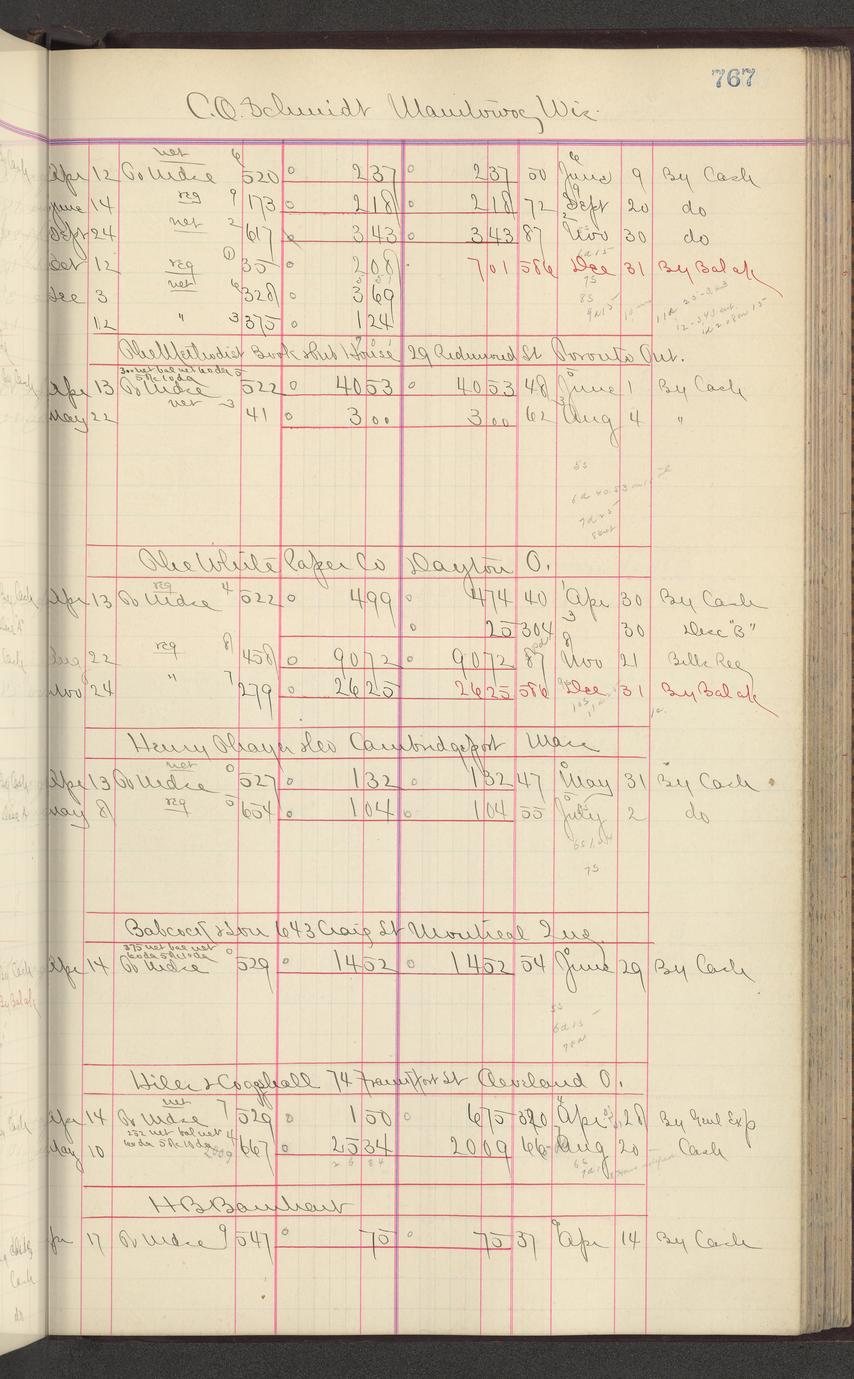 767
C.O. Schmidt Manitowoc Wis.
net 6
Apr 12 To Mdse 520 237 237 50 June 9 By Cash
June 14 reg 9 173 218 218 72 Sept 20 do
Sept 24 net 2 617 343 343 87 Nov 30 do
Oct 12 reg 35 208 701 586 Dec 31 By Bal a/c
Dec 3 net 6 328 369
12 " 3 375 124
The Methodist Book & Pub House 29 Richmond St Toronto Ont.
300 net bal net 60 da
5% 10 da
Apr 13 To Mdse 522 4053 4053 48 June 1 By Cash
May 22 net 3 41 300 300 62 Aug 4 "
The White Paper Co Dayton O.
Apr 13 To Mdse reg 4 522 499 474 40 Apr 30 By Cash
25 304 30 Disc "B"
Aug 22 reg 8 458 9072 9072 87 Nov 21 Bills Rec
Nov 24 " 7 279 2625 2625 586 Dec 31 By Bal a/c
Henry Thayer & Co Cambridgeport Mass
net 0
Apr 13 To Mdse 527 132 132 47 May 31 By Cash
May 8 reg 5 654 104 104 55 July 2 do
Babcock & Son 643 Craig St Montreal Que
375 net bal net
60 da 5% 10 da
Apr 14 To Mdse 529 1452 1452 54 June 29 By Cash
Hiler & Coggshall 74 Frankfort St Cleveland O.
net 7
Apr 14 To Mdse 529 150 675 320 Apr 28 By Genl Exp
252 net bal net 4
60 da 5% 10 da
May 10 667 2534 2009 66 Aug 20 Cash
H B Barnhart
17 To Mdse 9 547 75 75 37 Apr 14 By Cash